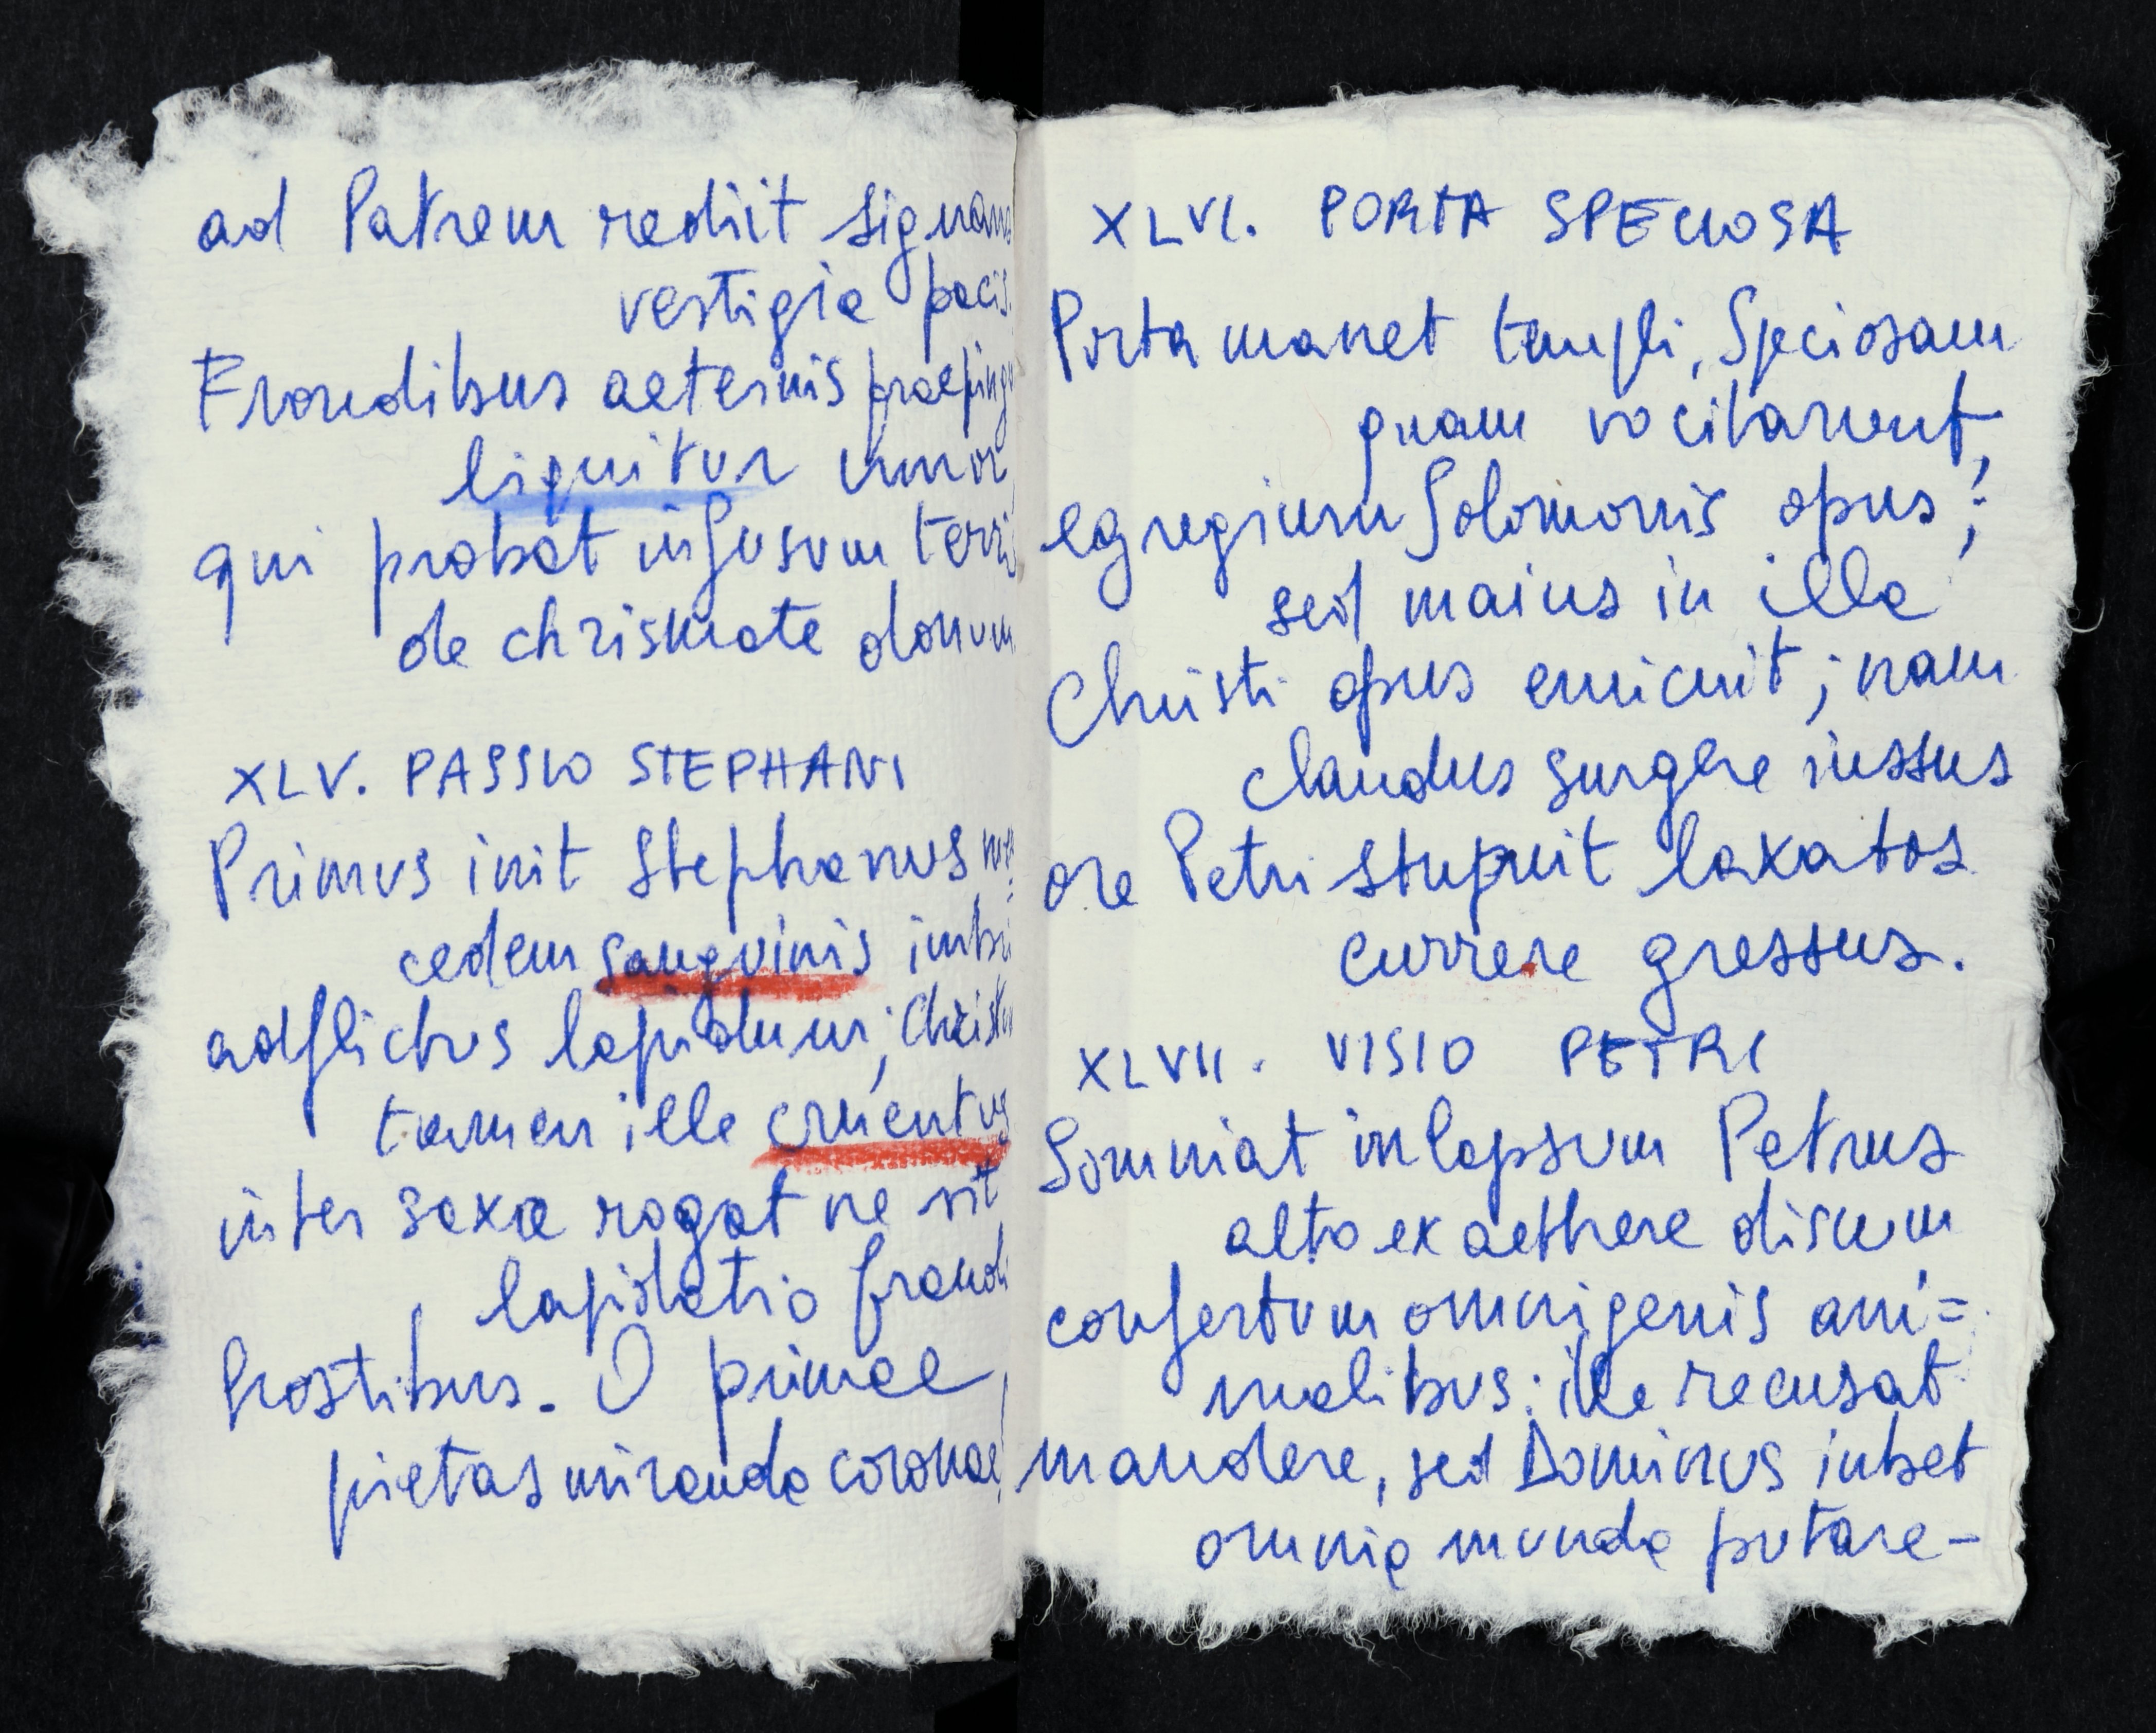 ad Patrem rediit signans
vestigia pacis.
Frondibus aeternis praepingu
liquitur umor
qui probat infusum terris
de chrismate donum
XLV. PASSIO STEPHANI
Primus init Stephanus
cedem sanguinis imbri
adflictus lapidum; Christu
tamen ille cruentus
inter saxa rogat ne sit
lapidatio fraudi
hostibus. O primae
pietas miranda coronae!
XLVI. PORTA SPECIOSA
Porta manet templi, Speciosam
quam vocitarunt,
egregium Solomonis opus;
sed maius in illa
Christi opus emicuit; nam
claudus surgere iussus
ore Petri stupuit laxatos
currere gressus.
XLVII. VISIO PETRI
Somniat inlapsum Petrus
alto ex aethere discum
confertum omnigenis ani=
malibus: ille recusat
mandere, sed Dominus iubet
omnia munda putare-